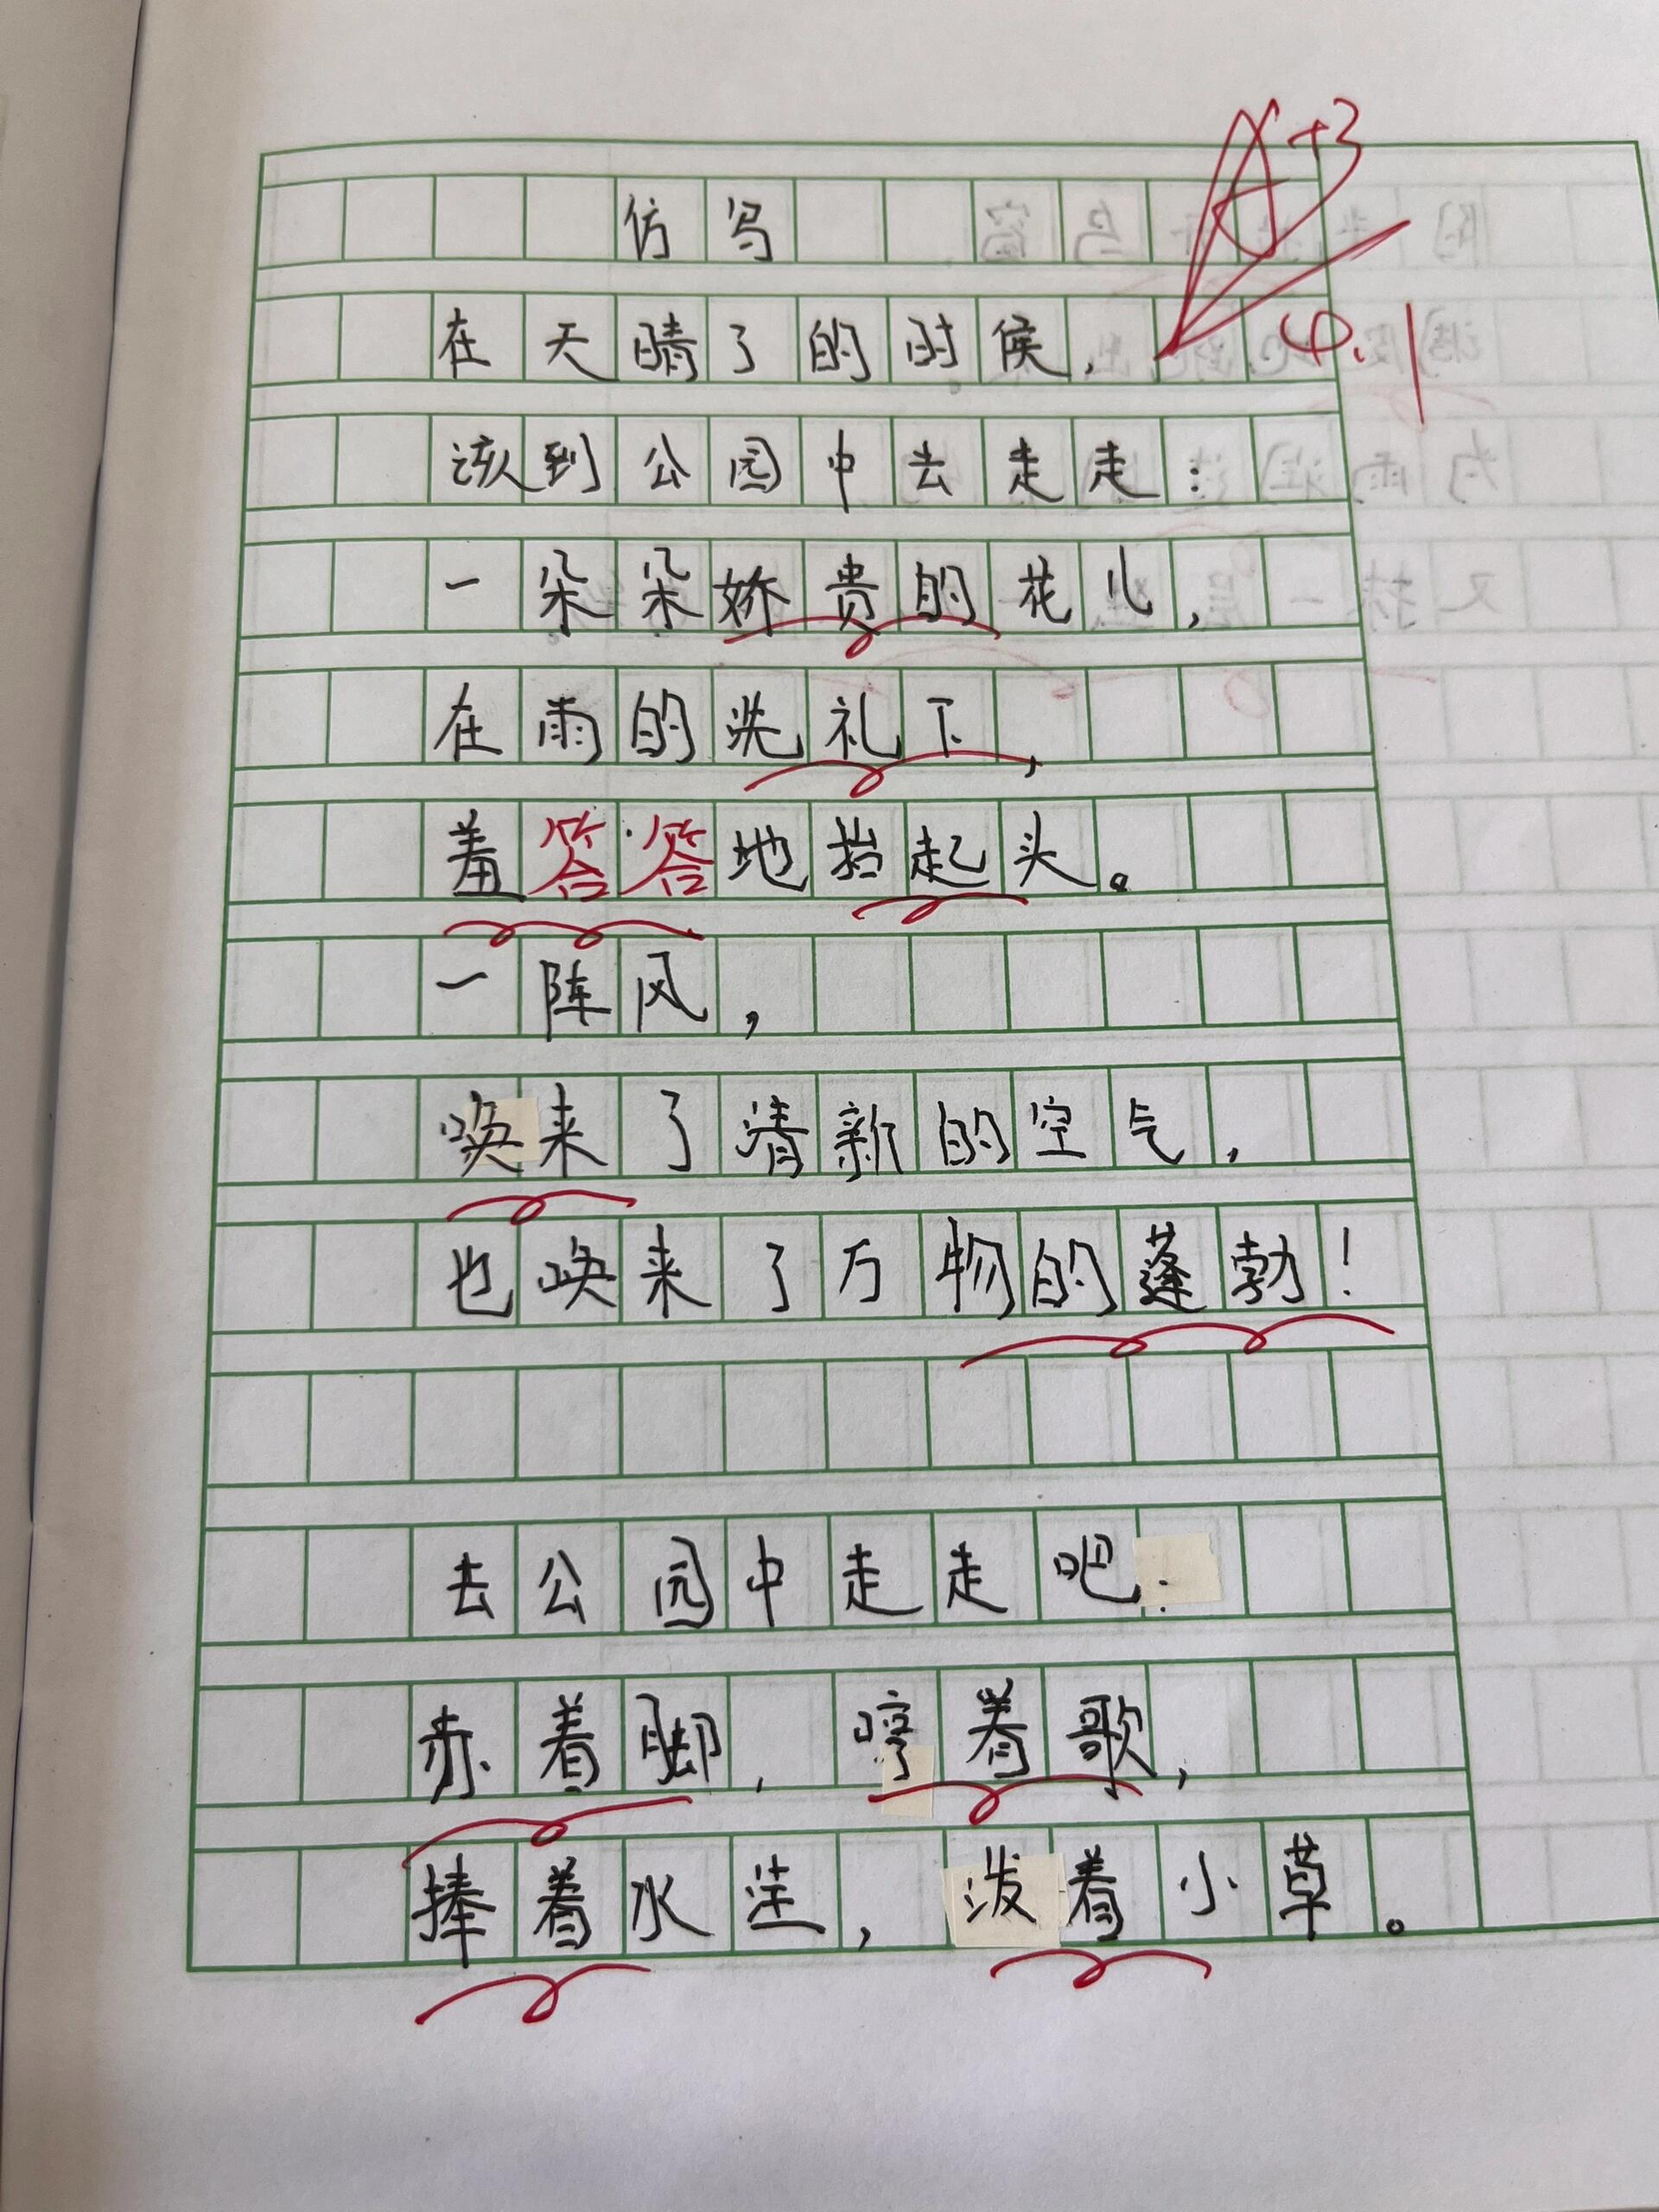 仿写
A+3
在天晴了的时候，
4.1
该到公园中去走走：
一朵朵娇贵的花儿，
在雨的洗礼下，
羞答答地抬起头。
一阵风，
唤来了清新的空气，
也唤来了万物的蓬勃！
去公园中走走吧：
赤着脚，哼着歌，
捧着水洼，泼着小草。